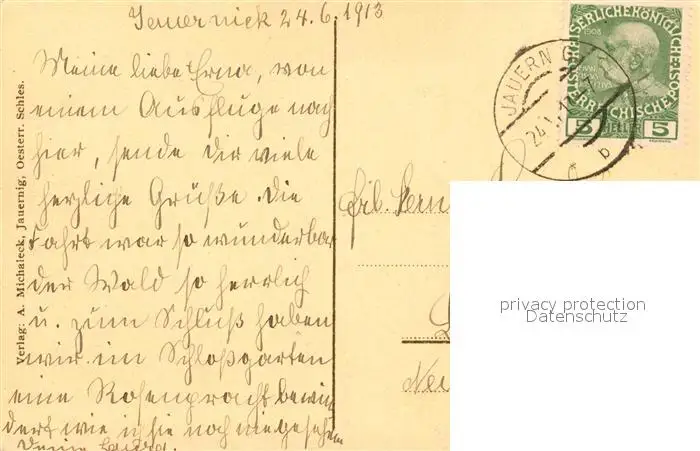 24.6.1913
Meine liebe Erna, von
einem Ausfluge nach
hier, sende dir viele
herzliche Grüße. Die
Fahrt war so wunderbar
der Wald so herrlich
u. zum Schluß haben
wir im Schloßgarten
eine Rosenpracht bewun
dert wie ich sie noch nie gesehen
Deine
Verlag: A. Michaleck, Jauernig, Oesterr. Schles.
KAISERLICHEKÖNIGLICHE
ÖSTERREICHISCHE
1908
5 HELLER 5
JAUERN
24
b
privacy protection
Datenschutz